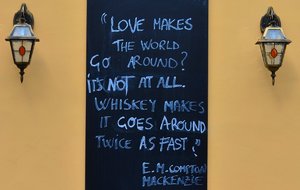 "LOVE MAKES
THE WORLD
GO AROUND?
IT'S NOT AT ALL.
WHISKEY MAKES
IT GOES AROUND
TWICE AS FAST"
E.M. COMPTON
MACKENZIE